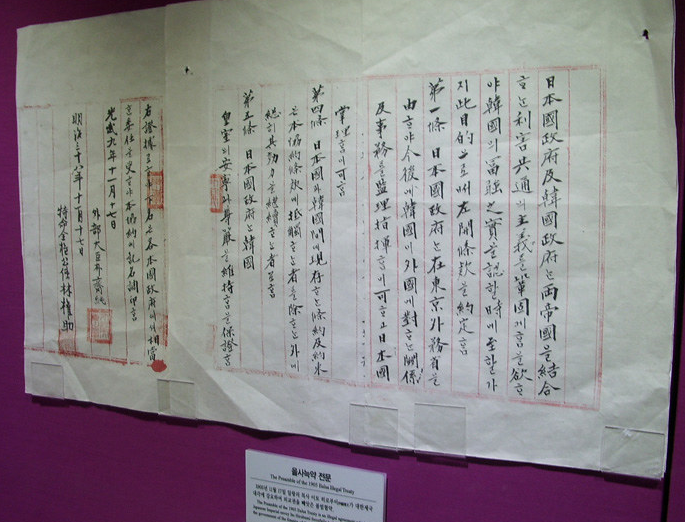 日本國政府及韓國政府는 兩帝國을 結合
하는 利害共通의 主義를 鞏固케 함을 欲하
야 韓國의 富強之實을 認할 時에 至할가
지 此目的으로써 左開條款을 約定함
第一條 日本國政府는 在東京外務省을
由하야 今後에 韓國이 外國에 對하는 關係
及事務를 監理指揮함이 可하고 日本國
掌理함이 可함
第四條 日本國과 韓國間에 現存하는 條約及約束
은 本協約條款에 抵觸하는 者를 除하는 外에
總히 其効力을 繼續하는 者로 함
第五條 日本國政府는 韓國
皇室의 安寧과 尊嚴을 維持함을 保證함
右證據로 하야 下名은 各本國政府에서 相當
한 委任을 受하야 本協約에 記名調印함
光武九年十一月十七日
外部大臣 朴齊純
明治三十八年十一月十七日
特命全權公使 林權助
을사늑약 전문
The Preamble of the 1905 Eulsa Illegal Treaty